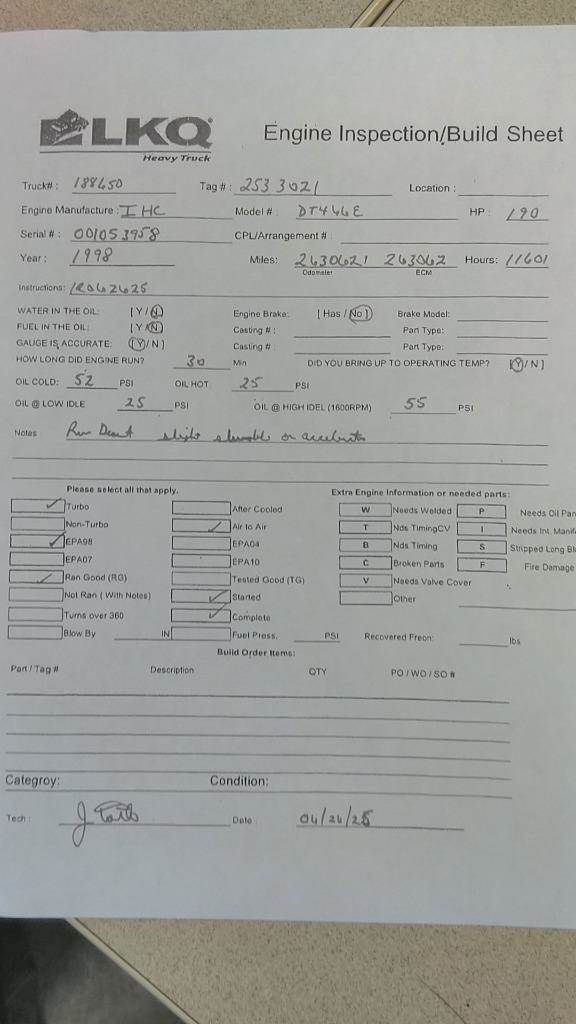 LKQ
Heavy Truck
Engine Inspection/Build Sheet
Truck#: 188650 Tag #: 253 3021 Location :
Engine Manufacture : IHC Model # DT466E HP: 190
Serial #: 001053958 CPL/Arrangement #
Year: 1998 Miles: 263062.1 263062 Hours: 11601
Odometer ECM
Instructions: 1R062625
WATER IN THE OIL: [Y/N] Engine Brake: [Has / No] Brake Model:
FUEL IN THE OIL: [Y/N] Casting #: Part Type:
GAUGE IS ACCURATE: [Y/N] Casting #: Part Type:
HOW LONG DID ENGINE RUN? 30 Min DID YOU BRING UP TO OPERATING TEMP? [Y/N]
OIL COLD: 52 PSI OIL HOT 25 PSI
OIL @ LOW IDLE 25 PSI OIL @ HIGH IDEL (1600RPM) 55 PSI
Notes Run slight stumble on
Please select all that apply. Extra Engine Information or needed parts:
Turbo After Cooled W Needs Welded P Needs Oil Pan
Non-Turbo Air to Air T Nds TimingCV I Needs Int. Manif
EPA98 EPA04 B Nds Timing S Stripped Long Bl
EPA07 EPA10 C Broken Parts F Fire Damage
Ran Good (RG) Tested Good (TG) V Needs Valve Cover
Not Ran ( With Notes) Started Other
Turns over 360 Complete
Blow By IN Fuel Press. PSI Recovered Freon: lbs
Build Order Items:
Part / Tag # Description QTY PO / WO / SO #
Categroy: Condition:
Tech : Date 04/26/25